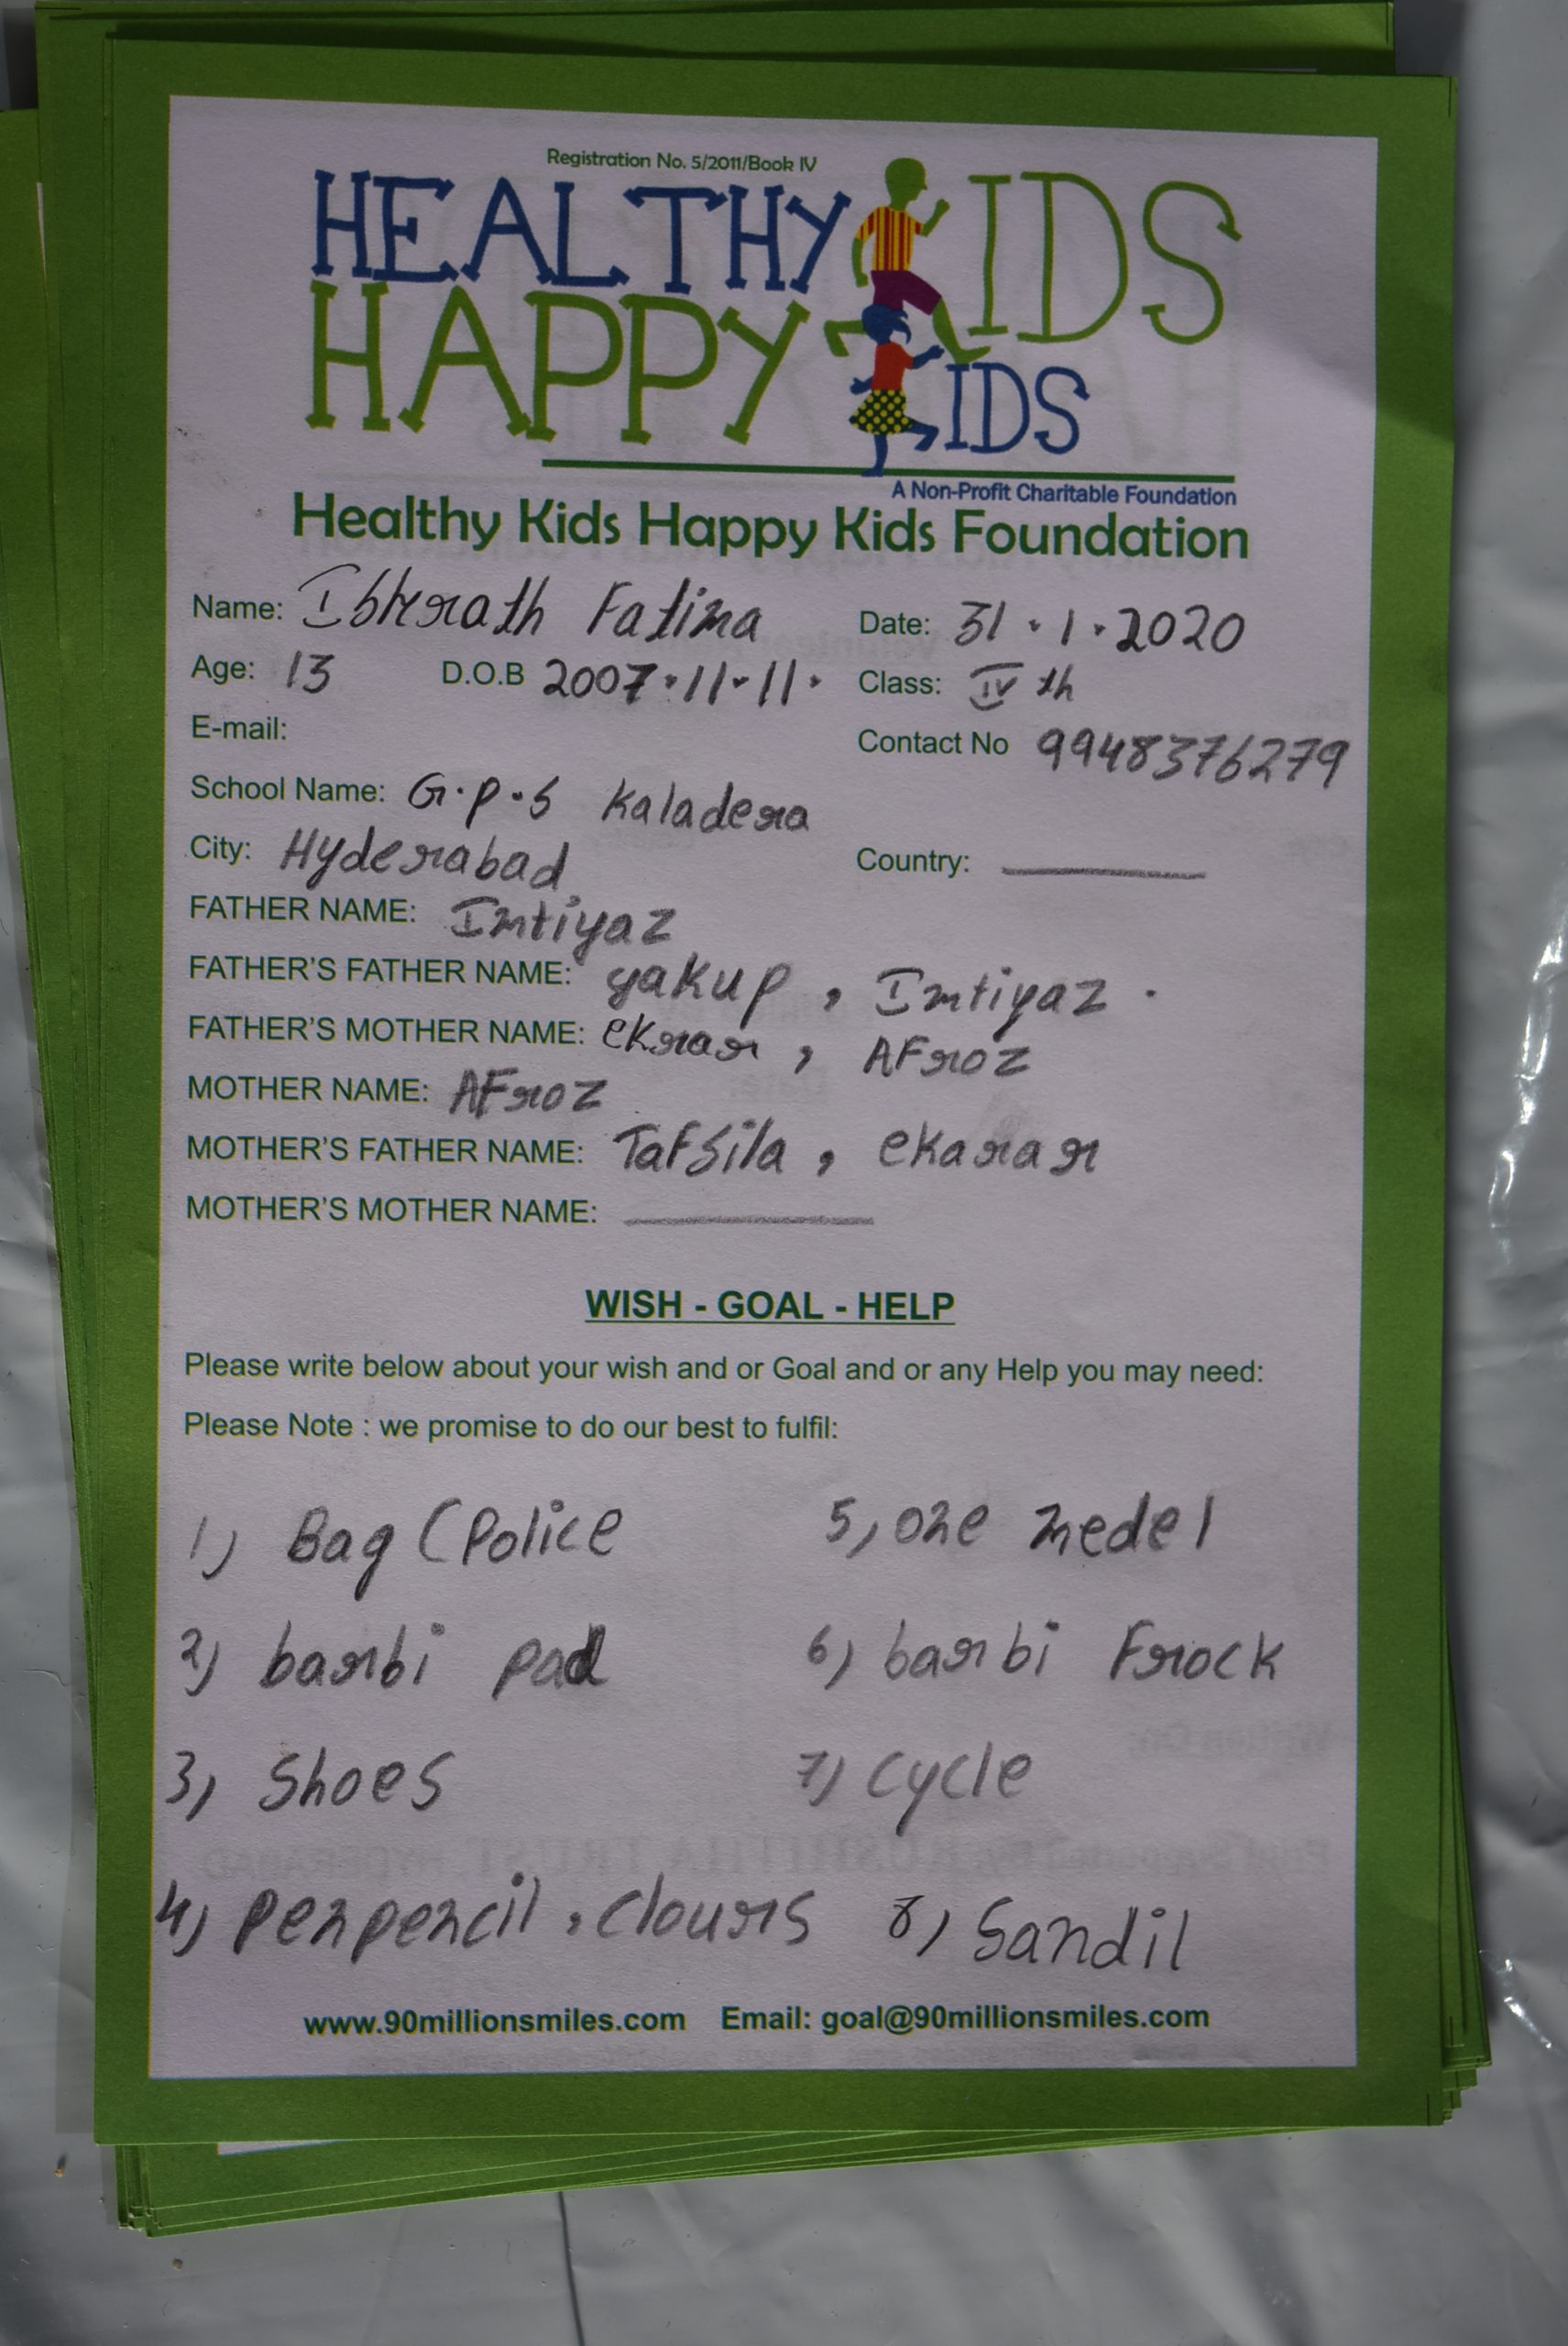 Registration No. 5/2011/Book IV
HEALTHY KIDS
HAPPY KIDS
A Non-Profit Charitable Foundation
Healthy Kids Happy Kids Foundation
Name: Fatima Date: 31.1.2020
Age: 13 D.O.B 2007.11.11. Class: IV th
E-mail: Contact No 9948376279
School Name: G.P.S Kaladera
City: Hyderabad Country:
FATHER NAME: Imtiyaz
FATHER'S FATHER NAME: yakup, Imtiyaz.
FATHER'S MOTHER NAME: ekrar, AFroz
MOTHER NAME: AFroz
MOTHER'S FATHER NAME: Tafsila, ekarar
MOTHER'S MOTHER NAME:
WISH - GOAL - HELP
Please write below about your wish and or Goal and or any Help you may need:
Please Note : we promise to do our best to fulfil:
1) Bag (Police 5, one medel
2) barbi pad 6) barbi Frock
3, Shoes 7) cycle
4) penpencil, clours 8) Sandil
www.90millionsmiles.com Email: goal@90millionsmiles.com